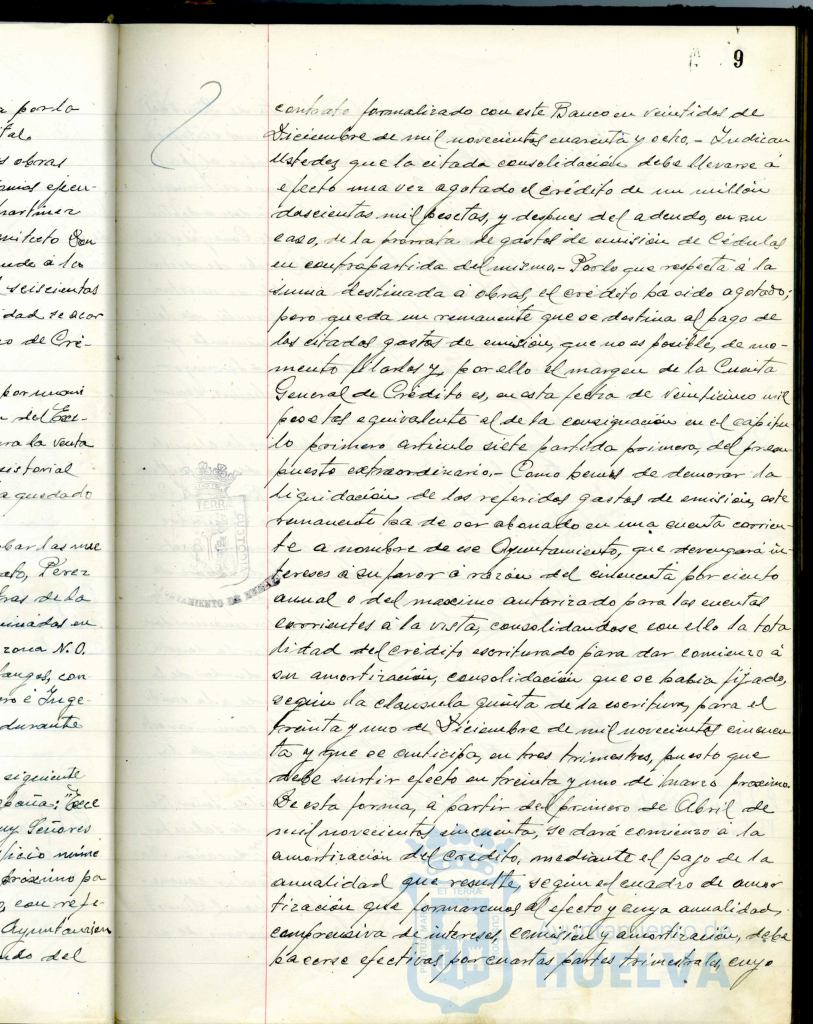 9
a por la
tal.
s obras
martinez
mitecto Don
nde á la
seiscientas
idad se acor
o de Cré-
por unani
n del Exc-
ara la venta
sistorial
a quedado
bar las nue
ato, Perez
ras de la
minadas en
zona N.O.
langos, con
ero é Inge-
durante
siguiente
paña: "Exc
uy Señores
ficio núme
próximo pa
, con refe-
Ayuntamien
ndo del
contrato formalizado con este Banco en veintidos de
Diciembre de mil novecientos cuarenta y ocho.- Indican
Ustedes que la citada consolidación debe llevarse á
efecto una vez agotado el crédito de un millón
doscientas mil pesetas, y despues del adeudo, en su
caso, de la prorrata de gastos de emisión de Cédulas
en contrapartida del mismo.- Por lo que respecta á la
suma destinada á obras, el crédito ha sido agotado;
pero queda un remanente que se destina al pago de
los citados gastos de emisión, que no es posible, de mo-
mento fijarlos y, por ello el margen de la Cuenta
General de Crédito es, en esta fecha de veinticinco mil
pesetas equivalente al de la consignación en el capitu-
lo primero articulo siete partida primera, del presu
puesto extraordinario.- Como hemos de demorar la
liquidación de los referidos gastos de emisión, este
remanente ha de ser abonado en una cuenta corrien-
te a nombre de ese Ayuntamiento, que devengará in-
tereses á su favor á razón del cincuenta por ciento
anual o del maximo autorizado para las cuentas
corrientes á la vista, consolidandose con ello la tota
lidad del crédito escriturado para dar comienzo á
su amortización, consolidación que se habia fijado,
según la clausula quinta de la escritura, para el
treinta y uno de Diciembre de mil novecientos cincuen
ta y que se anticipa, en tres trimestres, puesto que
debe surtir efecto en treinta y uno de marzo proximo.
De esta forma, á partir del primero de Abril de
mil novecientos cincuenta, se dará comienzo á la
amortización del crédito, mediante el pago de la
anualidad que resulte, según el cuadro de amor
tización que formaremos al efecto y cuya anualidad,
comprensiva de intereses, comisión y amortización, debe
hacerse efectiva por cuartas partes trimestrales, cuyo
Ayuntamiento de
HUELVA